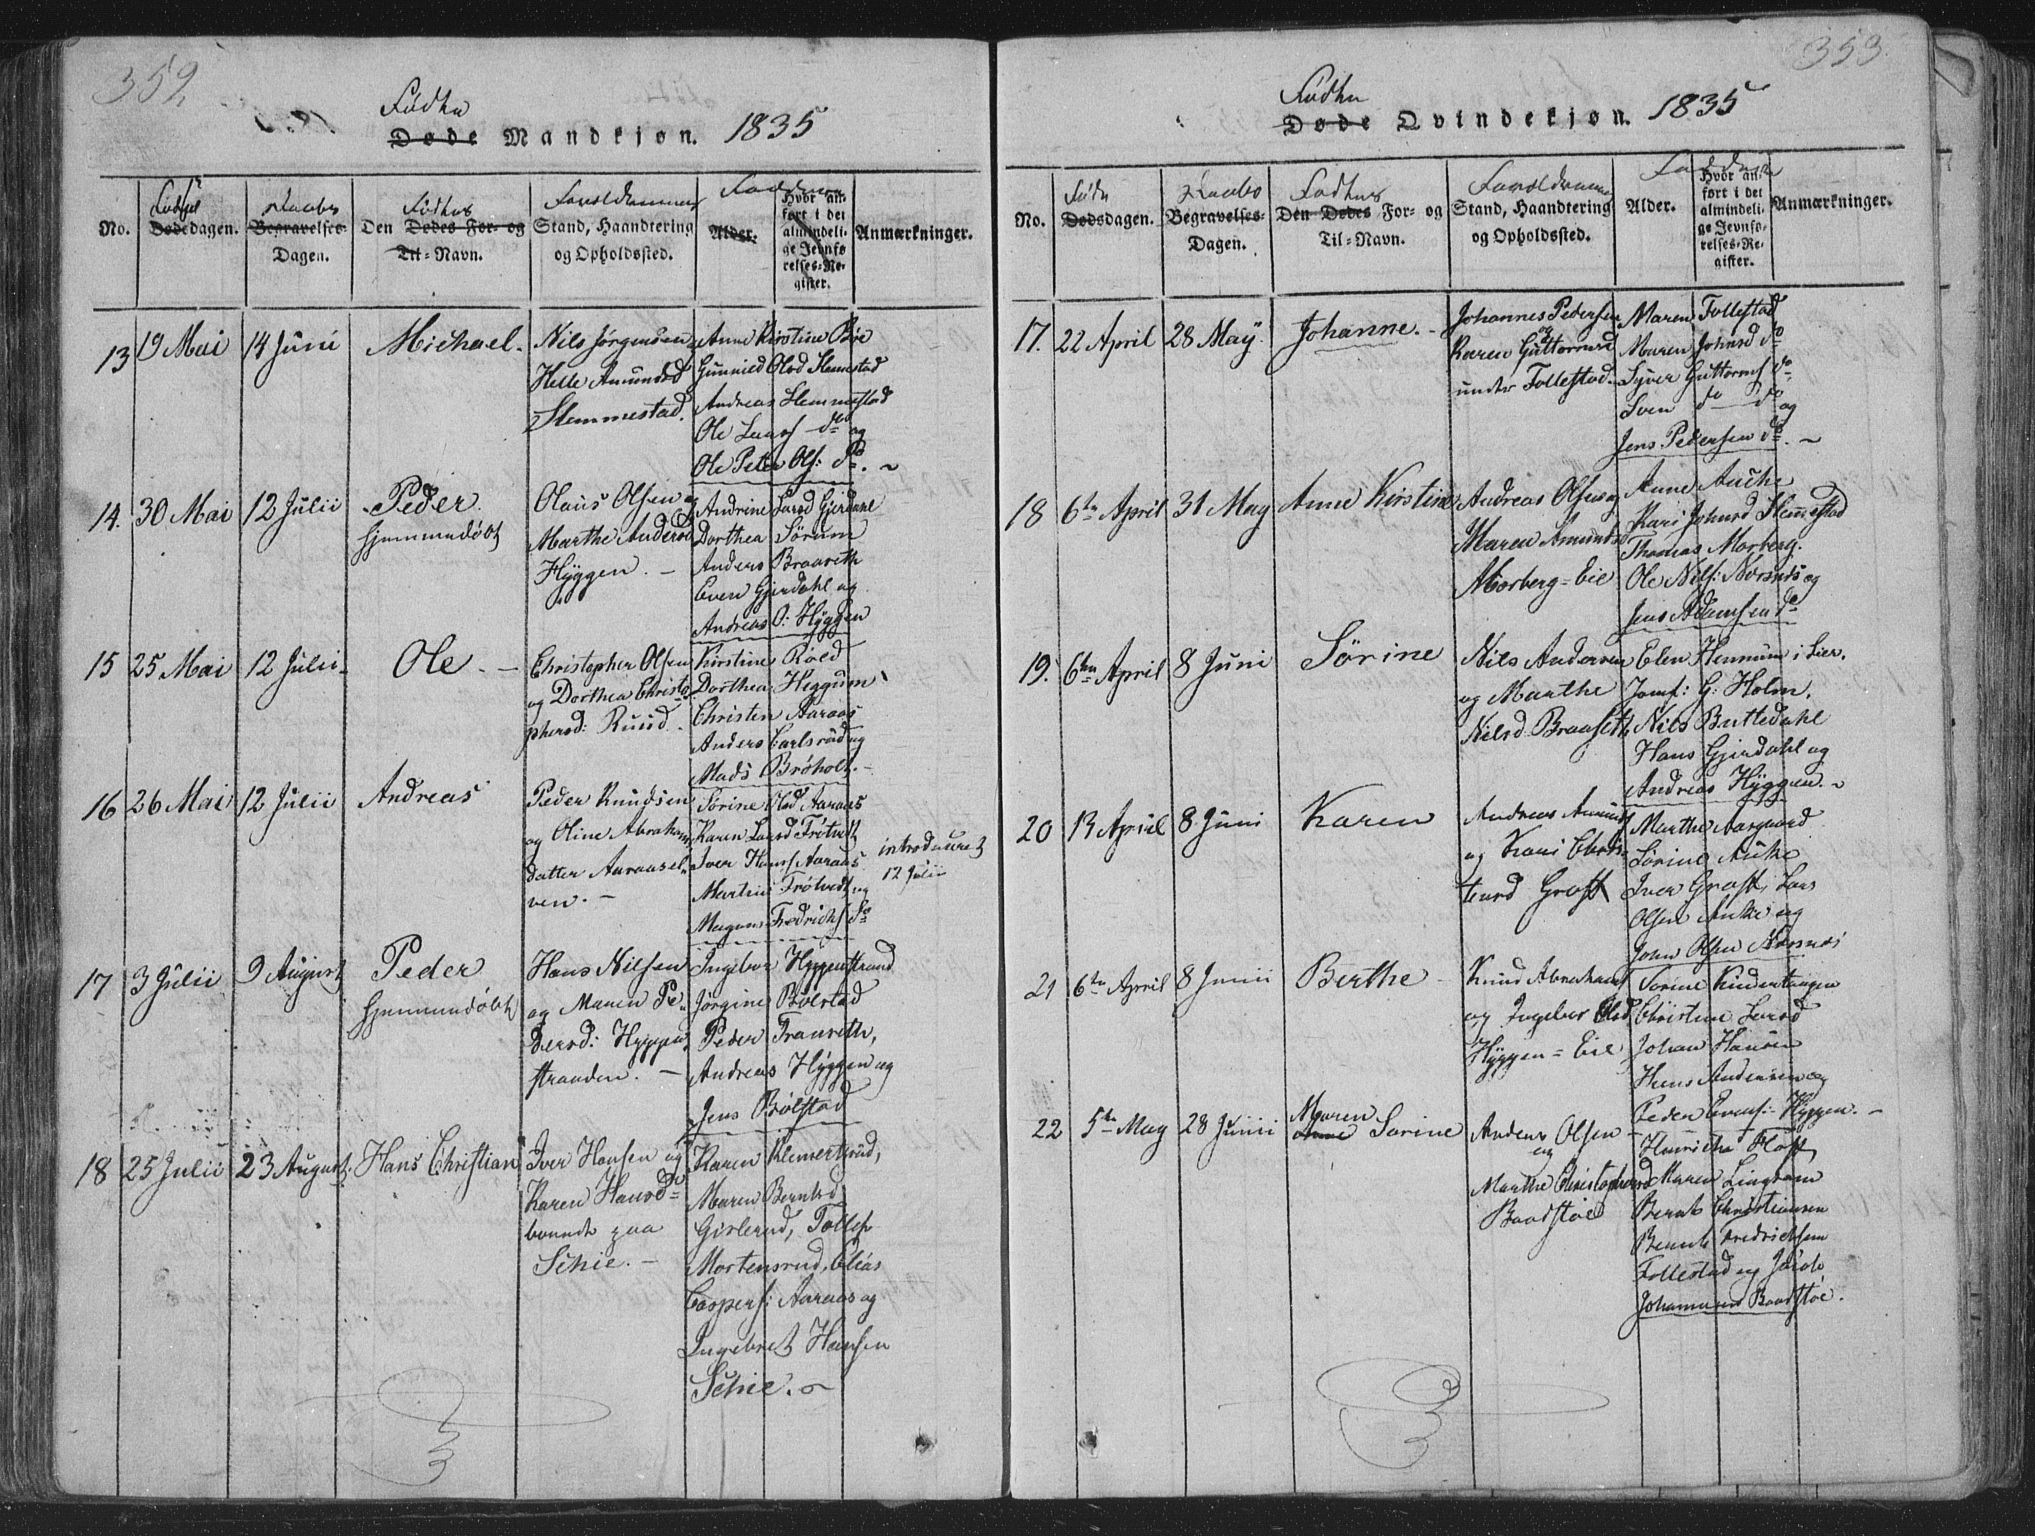 352
Fødte
Døde Mandkjøn. 1835
No.
Fødsel
Dødsdagen.
Daabs
Begravelses-
Dagen.
Fødtes
Den Dødes For- og
Til-Navn.
Forældrenes
Stand, Haandtering
og Opholdssted.
Faddere
Alder.
Hvor an-
ført i det
almindeli-
ge Jevnfø
relses-Re-
gister.
Anmærkninger.
13 19 Mai 14 Juni Michael.
Nils Jørgensen
Helle Amundsd
Slemmestad.
Anne Kirstine Böe
Gunnild Olsd Slemestad
Andreas Slemmestad
Ole Larss do og
Ole Peter Ols: do.
14. 30 Mai 12 Julii Peder.
hjemmedöbt
Olaus Olsen og
Marthe Andersd
Hÿggen.
Andrine Larsd Gjerdahl
Dorthea Sörum
Anders Braaseth
Even Gjerdahl og
Andreas O: Hÿggen
15 25 Mai 12 Julii Ole.
Christopher Olsen
og Dorthea Christo
phersd: Ruud.
Kirstine Röed
Dorthea Heggum
Christen Aaraas
Anders Carlsrud og
Mads Bröholt.
16 26 Mai 12 Julii Andreas
Peder Knudsen
og Oline Abraham
datter Aaraasel-
ven.
Sörine Olsd Aaraas
Karen Larsd Frötvedt
Iver Hanss Aaraas
Martin Frötvedt og
Magnus Fredrichs do
introduceret
12 Julii
17 3 Julii 9 August Peder
hjemmedöbt
Hans Nilsen
og Maren Pe-
dersd: Hyggen
stranden.
Ingebor Hyggenstrand
Jörgine Bölstad
Peder Tranreth,
Andreas Hÿggen og
Jens Bölstad
18 25 Julii 23 August Hans Christian
Iver Hansen og
Karen Hansd
boende paa
Schie.
Karen Klemertsrud,
Maren Berntsd
Girlerud, Tollef
Mortensrud, Elias
Caspers: Aaraas og
Ingebret Hansen
Schie.
353
Fødte
Døde Qvindekjøn. 1835
No.
Føds
Dødsdagen.
Daabs
Begravelses-
Dagen.
Fødtes
Den Dødes For- og
Til-Navn.
Forældrenes
Stand, Haandtering
og Opholdssted.
Faddere
Alder.
Hvor an-
ført i det
almindeli-
ge Jevnfø-
relses-Re-
gister.
Anmærkninger.
17. 22 April 28 Maÿ. Johanne.
Johannes Pedersen
og
Karen Guttormsd
under Follestad.
Maren Follestad
Maren Johnsd do
Syver Guttorms do
Sven do do og
Jens Pedersen do.
18 6te April 31 May Anne Kirstine
Andreas Olsen og
Maren Amunds
Morberg-Eie
Anne Auke
Kari Johnsd Slemestad
Thomas Morberg.
Ole Nils: Nærsnæs og
Jens Adamsen do
19. 6te April 8 Juni Sörine
Nils Andersen
og Marthe
Nilsd Braaseth
Elen Hennum i Lier.
Jomf: G: Holm.
Nils Buttedahl
Hans Gjerdahl og
Andreas Hÿggen.
20 13 April 8 Juni Karen
Andreas Amunds
og Kari Chris-
tensd Groff
Marthe Aasgaard
Sörine Auke
Iver Groff, Lars
Olsen Auke og
John Olsen Nærsnæs
21 6te April 8 Junii Berthe
Knud Abrahams
og Ingebor Olsd
Hÿggen-Eie
Sorine Kindertangen
Christine Larsd
Johan Hansen
Hans Andersen og
Peder Evens: Hÿggen.
22 5te May 28 Junii
Maren
Anne Sorine
Anders Olsen
og
Marthe Christophersd
Baadstöe
Henricha Floft,
Maren Lingsom
Bernt Christiansen
Bernt Fredrichsen
Follestad og Jacob
Johannesen Baadstöe.